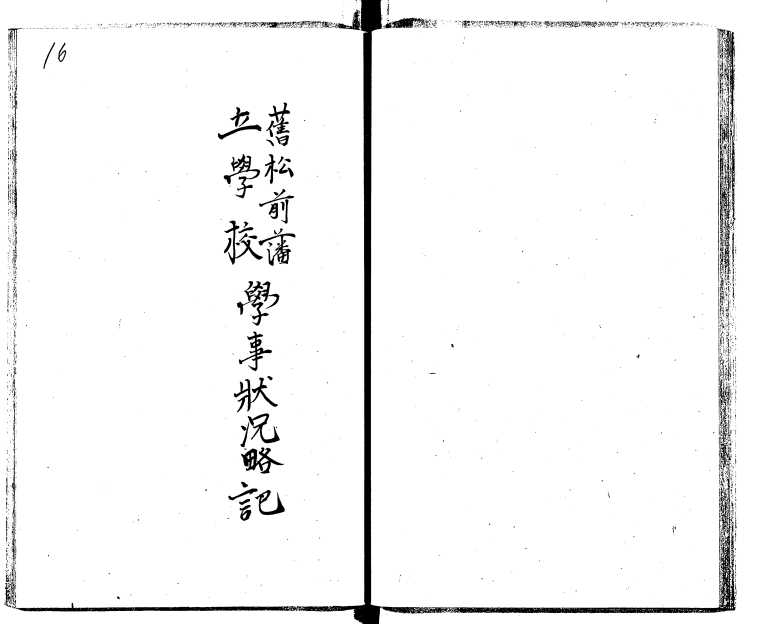 16
舊松前藩
立學校
學事狀況略記